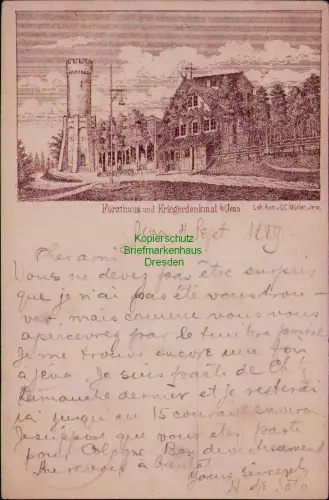 Forsthaus und Kriegerdenkmal b/Jena
Lith. Anst. v. G.C. Müller, Jena.
Jena 4 Sept 1889
Kopierschutz
Briefmarkenhaus
Dresden
Cher ami
Vous ne devez pas être surpris
que je n'ai pas été vous trou-
ver, mais comme vous vous
apercevrez par le timbre postal
Je me trouve encore une fois
à Jena. Je suis parti de
dimanche dernier et je resterai
ici jusqu'au 15 courant environ
Je suppose que vous êtes parti
pour Cologne. Bon divertissement
Au revoir à
Yours sincerely
H de Soto